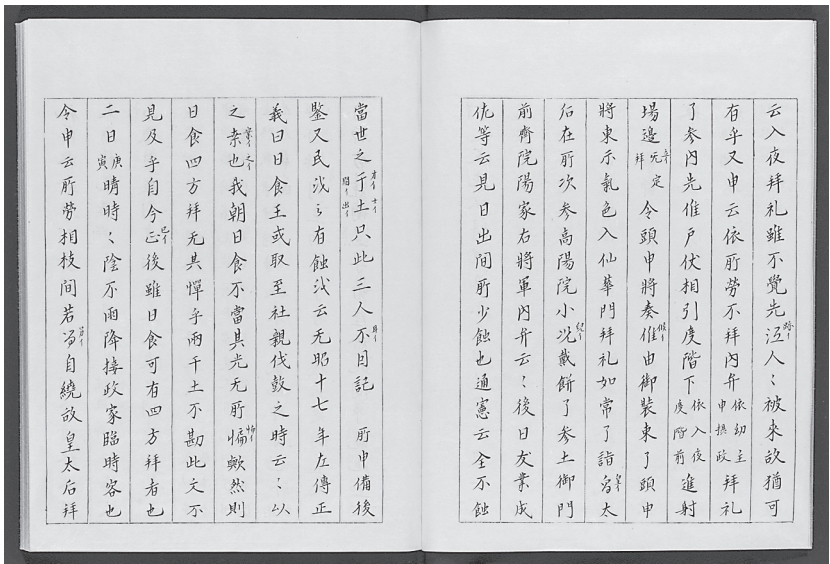 云入夜拝礼雖不覺先迊人〻被来故猶可
有乎又申云依所労不拝内弁依幼主申摂政拝礼
了参内先倠戸伏相引度階下依入夜度階前進射
場邊先定拝令頭申将奏倠由御装束了頭申
将東示氣色入仙華門拝礼如常了詣太
后在所次参高陽院小况戴餅了参土御門
前齊院陽家右將軍内弁云〻後日友業成
佐等云見日出間所少蝕也通憲云全不蝕
當世之亍土只此三人不日記　所申備後
鍳又民浅〻有蝕浅云无昭十七年左傳正
義曰日食王或取至社親伐鼓之時云〻以
之桒也我朝日食不當其光无所惼歟然則
日食四方拝无其憚乎兩千土不勘此文不
見及乎自今正後雖日食可有四方拝者也
二日庚寅晴時〻陰不雨降接政家臨時客也
令申云所勞相枝間若自繞故皇太后拝